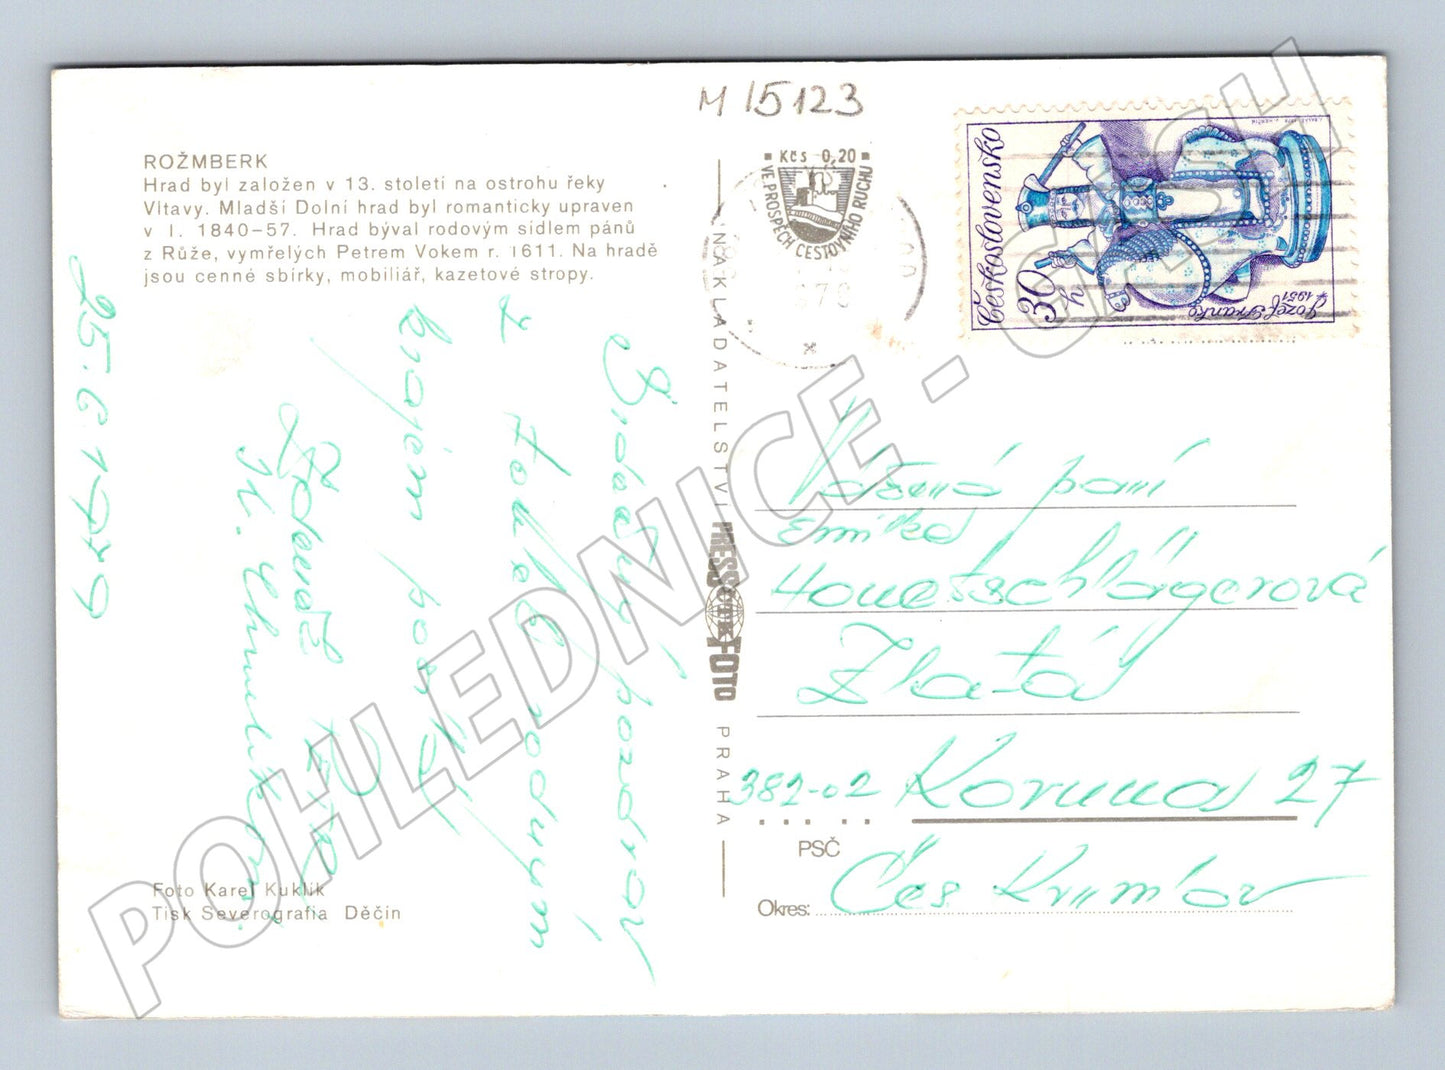 M 15123
ROŽMBERK
Hrad byl založen v 13. století na ostrohu řeky
Vltavy. Mladší Dolní hrad byl romanticky upraven
v l. 1840–57. Hrad býval rodovým sídlem pánů
z Růže, vymřelých Petrem Vokem r. 1611. Na hradě
jsou cenné sbírky, mobiliář, kazetové stropy.
Kčs 0,20
VE PROSPĚCH CESTOVNÍHO RUCHU
Československo
30 h
Jozef Franko
*1951
Srdečný pozdrav
z
krajem
25.6.1979
NAKLADATELSTVÍ
PRESSFOTO
PRAHA
Vážená paní
Emilka
Honetschlägerová
Zlatá
382-02 Koruna 27
PSČ
Čes Krumlov
Okres:
Foto Karel Kuklík
Tisk Severografia Děčín
POHLEDNICE - CASH